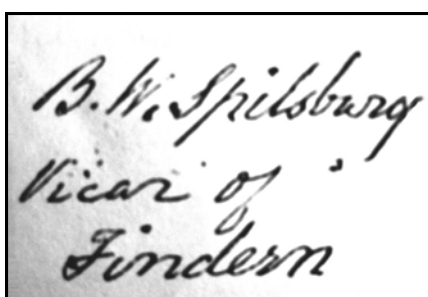 B. W. Spilsbury
Vicar of
Findern